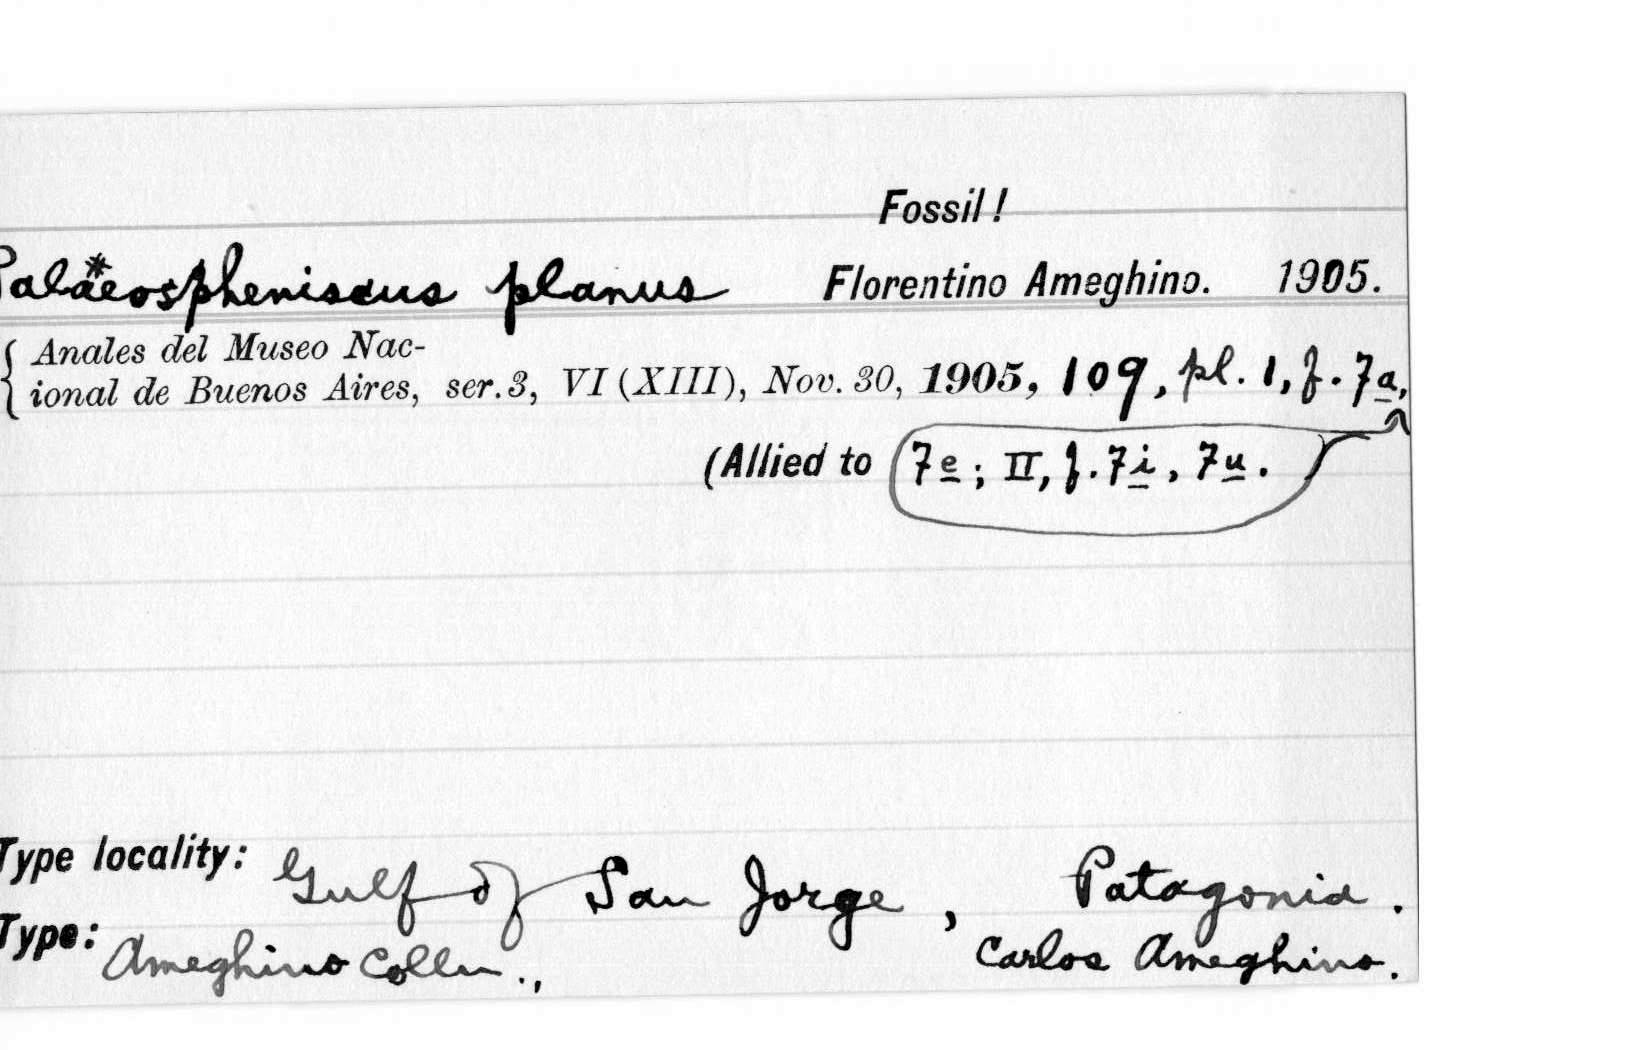 Fossil!
Palæospheniscus planus Florentino Ameghino. 1905.
Anales del Museo Nac-
ional de Buenos Aires, ser. 3, VI (XIII), Nov. 30, 1905, 109, pl. 1, f. 7a,
(Allied to 7e; II, f. 7i, 7u.
Type locality: Gulf of San Jorge, Patagonia.
Type: Ameghino Colln., Carlos Ameghino.